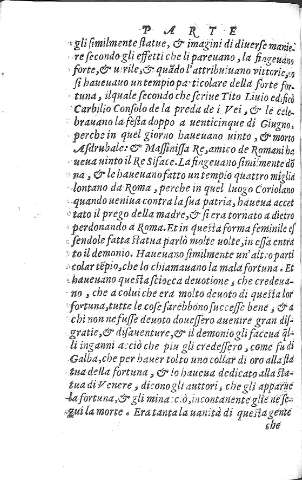 PARTE
gli similmente statue, & imagini di diuerse manie
re secondo gli effetti che li pareuano, la fingeuano
forte, & uirile, & quãdo l'attribuiuano uittorie, co
si haueuano un tempio particolare della forte for
tuna, ilquale secondo che scriue Tito Liuio edificò
Carbilio Consolo de la preda de i Vei, & le cele-
brauano la festa doppo a uenticinque di Giugno,
perche in quel giorno haueuano uinto, & morto
Asdrubale: & Massinissa Re, amico de Romani ha
ueua uinto il Re Siface. La fingeuano similmente dõ
na, & le haueuano fatto un tempio quattro miglia
lontano da Roma, perche in quel luogo Coriolano
quando ueniua contra la sua patria, haueua accet
tato il prego della madre, & si era tornato a dietro
perdonando a Roma. Et in questa forma feminile es
sendole fatta statua parlò molte uolte, in essa entrã
to il demonio. Haueuano similmente un'altro parti
colar tẽpio, che lo chiamauano la mala fortuna. Et
haueuano questa sciocca deuotione, che credeua-
no, che a colui che era molto deuoto di questa lor
fortuna, tutte le cose sarebbono successe bene, & a
chi non ne fusse deuoto douessero auenire gran dis-
gratie, & disauenture, & il demonio gli faceua q̃l-
li inganni acciò che piu gli credessero, come fu di
Galba, che per hauer tolto uno collar di oro alla sta
tua della fortuna, & lo haueua dedicato alla sta-
tua di Venere, dicono gli auttori, che gli apparue
la fortuna, & gli minacciò, incontanente gli ne se-
gui la morte. Era tanta la uanità di questa gente
che